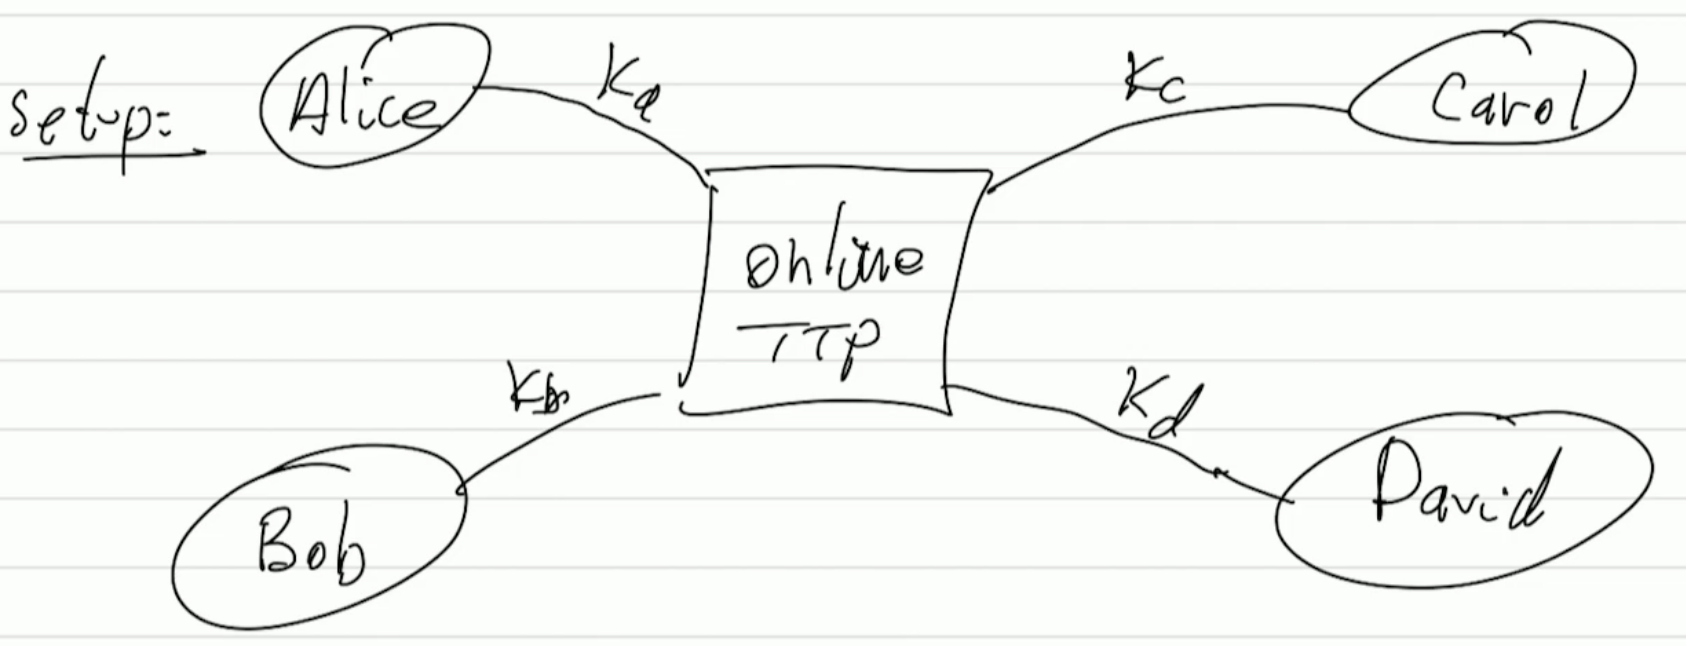 Setup:
Alice
Ka
Kc
Carol
online
TTP
Kb
Kd
Bob
David